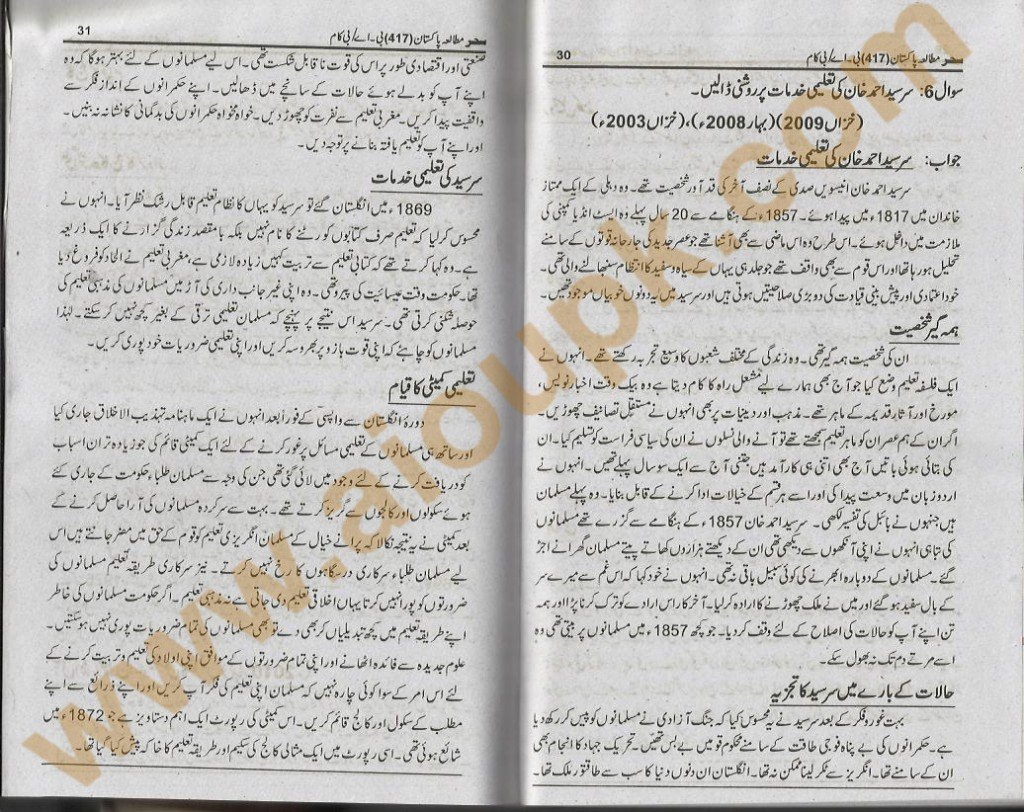 سحر مطالعہ پاکستان (417) بی۔اے/بی کام
30
سوال 6: سرسید احمد خان کی تعلیمی خدمات پر روشنی ڈالیں۔
(خزاں 2009) (بہار 2008ء)، (خزاں 2003ء)
جواب: سرسید احمد خان کی تعلیمی خدمات
سرسید احمد خان انیسویں صدی کے نصف آخر کی قد آور شخصیت تھے۔ وہ دہلی کے ایک ممتاز
خاندان میں 1817ء میں پیدا ہوئے۔ 1857ء کے ہنگامے سے 20 سال پہلے وہ ایسٹ انڈیا کمپنی کی
ملازمت میں داخل ہوئے۔ اس طرح وہ اس ماضی سے بھی آشنا تھے جو عصر جدید کی جارحانہ قوتوں کے سامنے
تحلیل ہو رہا تھا اور اس قوم سے بھی واقف تھے جو جلد ہی یہاں کے سیاہ و سفید کا انتظام سنبھالنے والی تھی۔
خود اعتمادی اور پیش بینی قیادت کی دو بڑی صلاحیتیں ہوتی ہیں اور سرسید میں یہ دونوں خوبیاں موجود تھیں۔
ہمہ گیر شخصیت
ان کی شخصیت ہمہ گیر تھی۔ وہ زندگی کے مختلف شعبوں کا وسیع تجربہ رکھتے تھے۔ انہوں نے
ایک فلسفہ تعلیم وضع کیا جو آج بھی ہمارے لیے مشعل راہ کا کام دیتا ہے وہ بیک وقت اخبار نویس،
مورخ اور آثار قدیمہ کے ماہر تھے۔ مذہب اور دینیات پر بھی انہوں نے مستقل تصانیف چھوڑیں۔
اگر ان کے ہم عصر ان کو ماہر تعلیم سمجھتے تھے تو آنے والی نسلوں نے ان کی سیاسی فراست کو تسلیم کیا۔ ان
کی بتائی ہوئی باتیں آج بھی اتنی ہی کارآمد ہیں جتنی آج سے ایک سو سال پہلے تھیں۔ انہوں نے
اردو زبان میں وسعت پیدا کی اور اسے ہر قسم کے خیالات ادا کرنے کے قابل بنایا۔ وہ پہلے مسلمان
ہیں جنہوں نے بائبل کی تفسیر لکھی۔ سرسید احمد خان 1857ء کے ہنگامے سے گزرے تھے مسلمانوں
کی تباہی انہوں نے اپنی آنکھوں سے دیکھی تھی ان کے دیکھتے ہزاروں کھاتے پیتے مسلمان گھرانے اجڑ
گئے۔ مسلمانوں کے دوبارہ ابھرنے کی کوئی سبیل باقی نہ تھی۔ انہوں نے خود کہا کہ اس غم سے میرے سر
کے بال سفید ہو گئے اور میں نے ملک چھوڑنے کا ارادہ کر لیا۔ آخر کار اس ارادے کو ترک کرنا پڑا اور ہمہ
تن اپنے آپ کو حالات کی اصلاح کے لئے وقف کر دیا۔ جو کچھ 1857ء میں مسلمانوں پر بیتی تھی وہ
اسے مرتے دم تک نہ بھول سکے۔
حالات کے بارے میں سرسید کا تجزیہ
بہت غور و فکر کے بعد سرسید نے یہ محسوس کیا کہ جنگ آزادی نے مسلمانوں کو پیس کر رکھ دیا
ہے۔ حکمرانوں کی بے پناہ فوجی طاقت کے سامنے محکوم قومیں بے بس تھیں۔ تحریک جہاد کا انجام بھی
ان کے سامنے تھا۔ انگریز سے ٹکر لینا ممکن نہ تھا۔ انگلستان ان دنوں دنیا کا سب سے طاقتور ملک تھا۔
سحر مطالعہ پاکستان (417) بی۔اے/بی کام
31
صنعتی اور اقتصادی طور پر اس کی قوت ناقابل شکست تھی۔ اس لیے مسلمانوں کے لئے بہتر ہو گا کہ وہ
اپنے آپ کو بدلے ہوئے حالات کے سانچے میں ڈھالیں۔ اپنے حکمرانوں کے انداز فکر سے
واقفیت پیدا کریں۔ مغربی تعلیم سے نفرت کو چھوڑ دیں۔ خواہ مخواہ حکمرانوں کی بدگمانی کا نشانہ نہ بنیں۔
اور اپنے آپ کو تعلیم یافتہ بنانے پر توجہ دیں۔
سرسید کی تعلیمی خدمات
1869ء میں انگلستان گئے تو سرسید کو یہاں کا نظام تعلیم قابل رشک نظر آیا۔ انہوں نے
محسوس کر لیا کہ تعلیم صرف کتابوں کو رٹنے کا نام نہیں بلکہ بامقصد زندگی گزارنے کا ایک ذریعہ
ہے۔ وہ کہا کرتے تھے کہ کتابی تعلیم سے تربیت کہیں زیادہ لازمی ہے، مغربی تعلیم نے الحاد کو فروغ دیا
تھا۔ حکومت وقت عیسائیت کی پیرو تھی۔ وہ اپنی غیر جانب داری کی آڑ میں مسلمانوں کی مذہبی تعلیم کی
حوصلہ شکنی کرتی تھی۔ سرسید اس نتیجے پر پہنچے کہ مسلمان تعلیمی ترقی کے بغیر کچھ نہیں کر سکتے۔ لہٰذا
مسلمانوں کو چاہئے کہ اپنی قوت بازو پر بھروسہ کریں اور اپنی تعلیمی ضروریات خود پوری کریں۔
تعلیمی کمیٹی کا قیام
دورۂ انگلستان سے واپسی کے فوراً بعد انہوں نے ایک ماہنامہ تہذیب الاخلاق جاری کیا
اور ساتھ ہی مسلمانوں کے تعلیمی مسائل پر غور کرنے کے لئے ایک کمیٹی قائم کی جو زیادہ تر ان اسباب
کو دریافت کرنے کے لئے وجود میں لائی گئی تھی جن کی وجہ سے مسلمان طلباء حکومت کے جاری کئے
ہوئے سکولوں اور کالجوں سے گریز کرتے تھے۔ بہت سے سرکردہ مسلمانوں کی آراء حاصل کرنے کے
بعد کمیٹی نے یہ نتیجہ نکالا کہ پرانے خیال کے مسلمان انگریزی تعلیم کو قوم کے حق میں مضر جانتے ہیں اس
لیے مسلمان طلباء سرکاری درسگاہوں کا رخ نہیں کرتے۔ نیز سرکاری طریقہ تعلیم مسلمانوں کی
ضرورتوں کو پورا نہیں کرتا یہاں اخلاقی تعلیم دی جاتی ہے نہ مذہبی تعلیم۔ اگر حکومت مسلمانوں کی خاطر
اپنے طریقہ تعلیم میں کچھ تبدیلیاں کر بھی دے تو بھی مسلمانوں کی تمام ضروریات پوری نہیں ہو سکتیں۔
علوم جدیدہ سے فائدہ اٹھانے اور اپنی تمام ضرورتوں کے موافق اپنی اولاد کی تعلیم و تربیت کرنے کے
لئے اس امر کے سوا کوئی چارہ نہیں کہ مسلمان اپنی تعلیم کی فکر آپ کریں اور اپنے ذرائع سے اپنے
مطلب کے سکول اور کالج قائم کریں۔ اس کمیٹی کی رپورٹ ایک اہم دستاویز ہے جو 1872ء میں
شائع ہوئی تھی۔ اسی رپورٹ میں ایک مثالی کالج کی سکیم اور طریقہ تعلیم کا خاکہ پیش کیا گیا تھا۔
www.aioupk.com